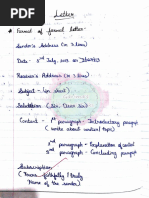 Letter
* Format of formal letter-
Sender's Address (in 3 lines)
Date - 5th July, 2023 on
Receiver's Address (in 3 lines)
Subject - (in short)
Salutation (Sir, Dear Sir)
Content - 1st paragraph - Introductory paragraph
(write about writer/topic)
2nd paragraph - Explanation of content
3rd paragraph - Concluding paragraph
Subscription
(Yours faithfully / truly
Name of the sender)